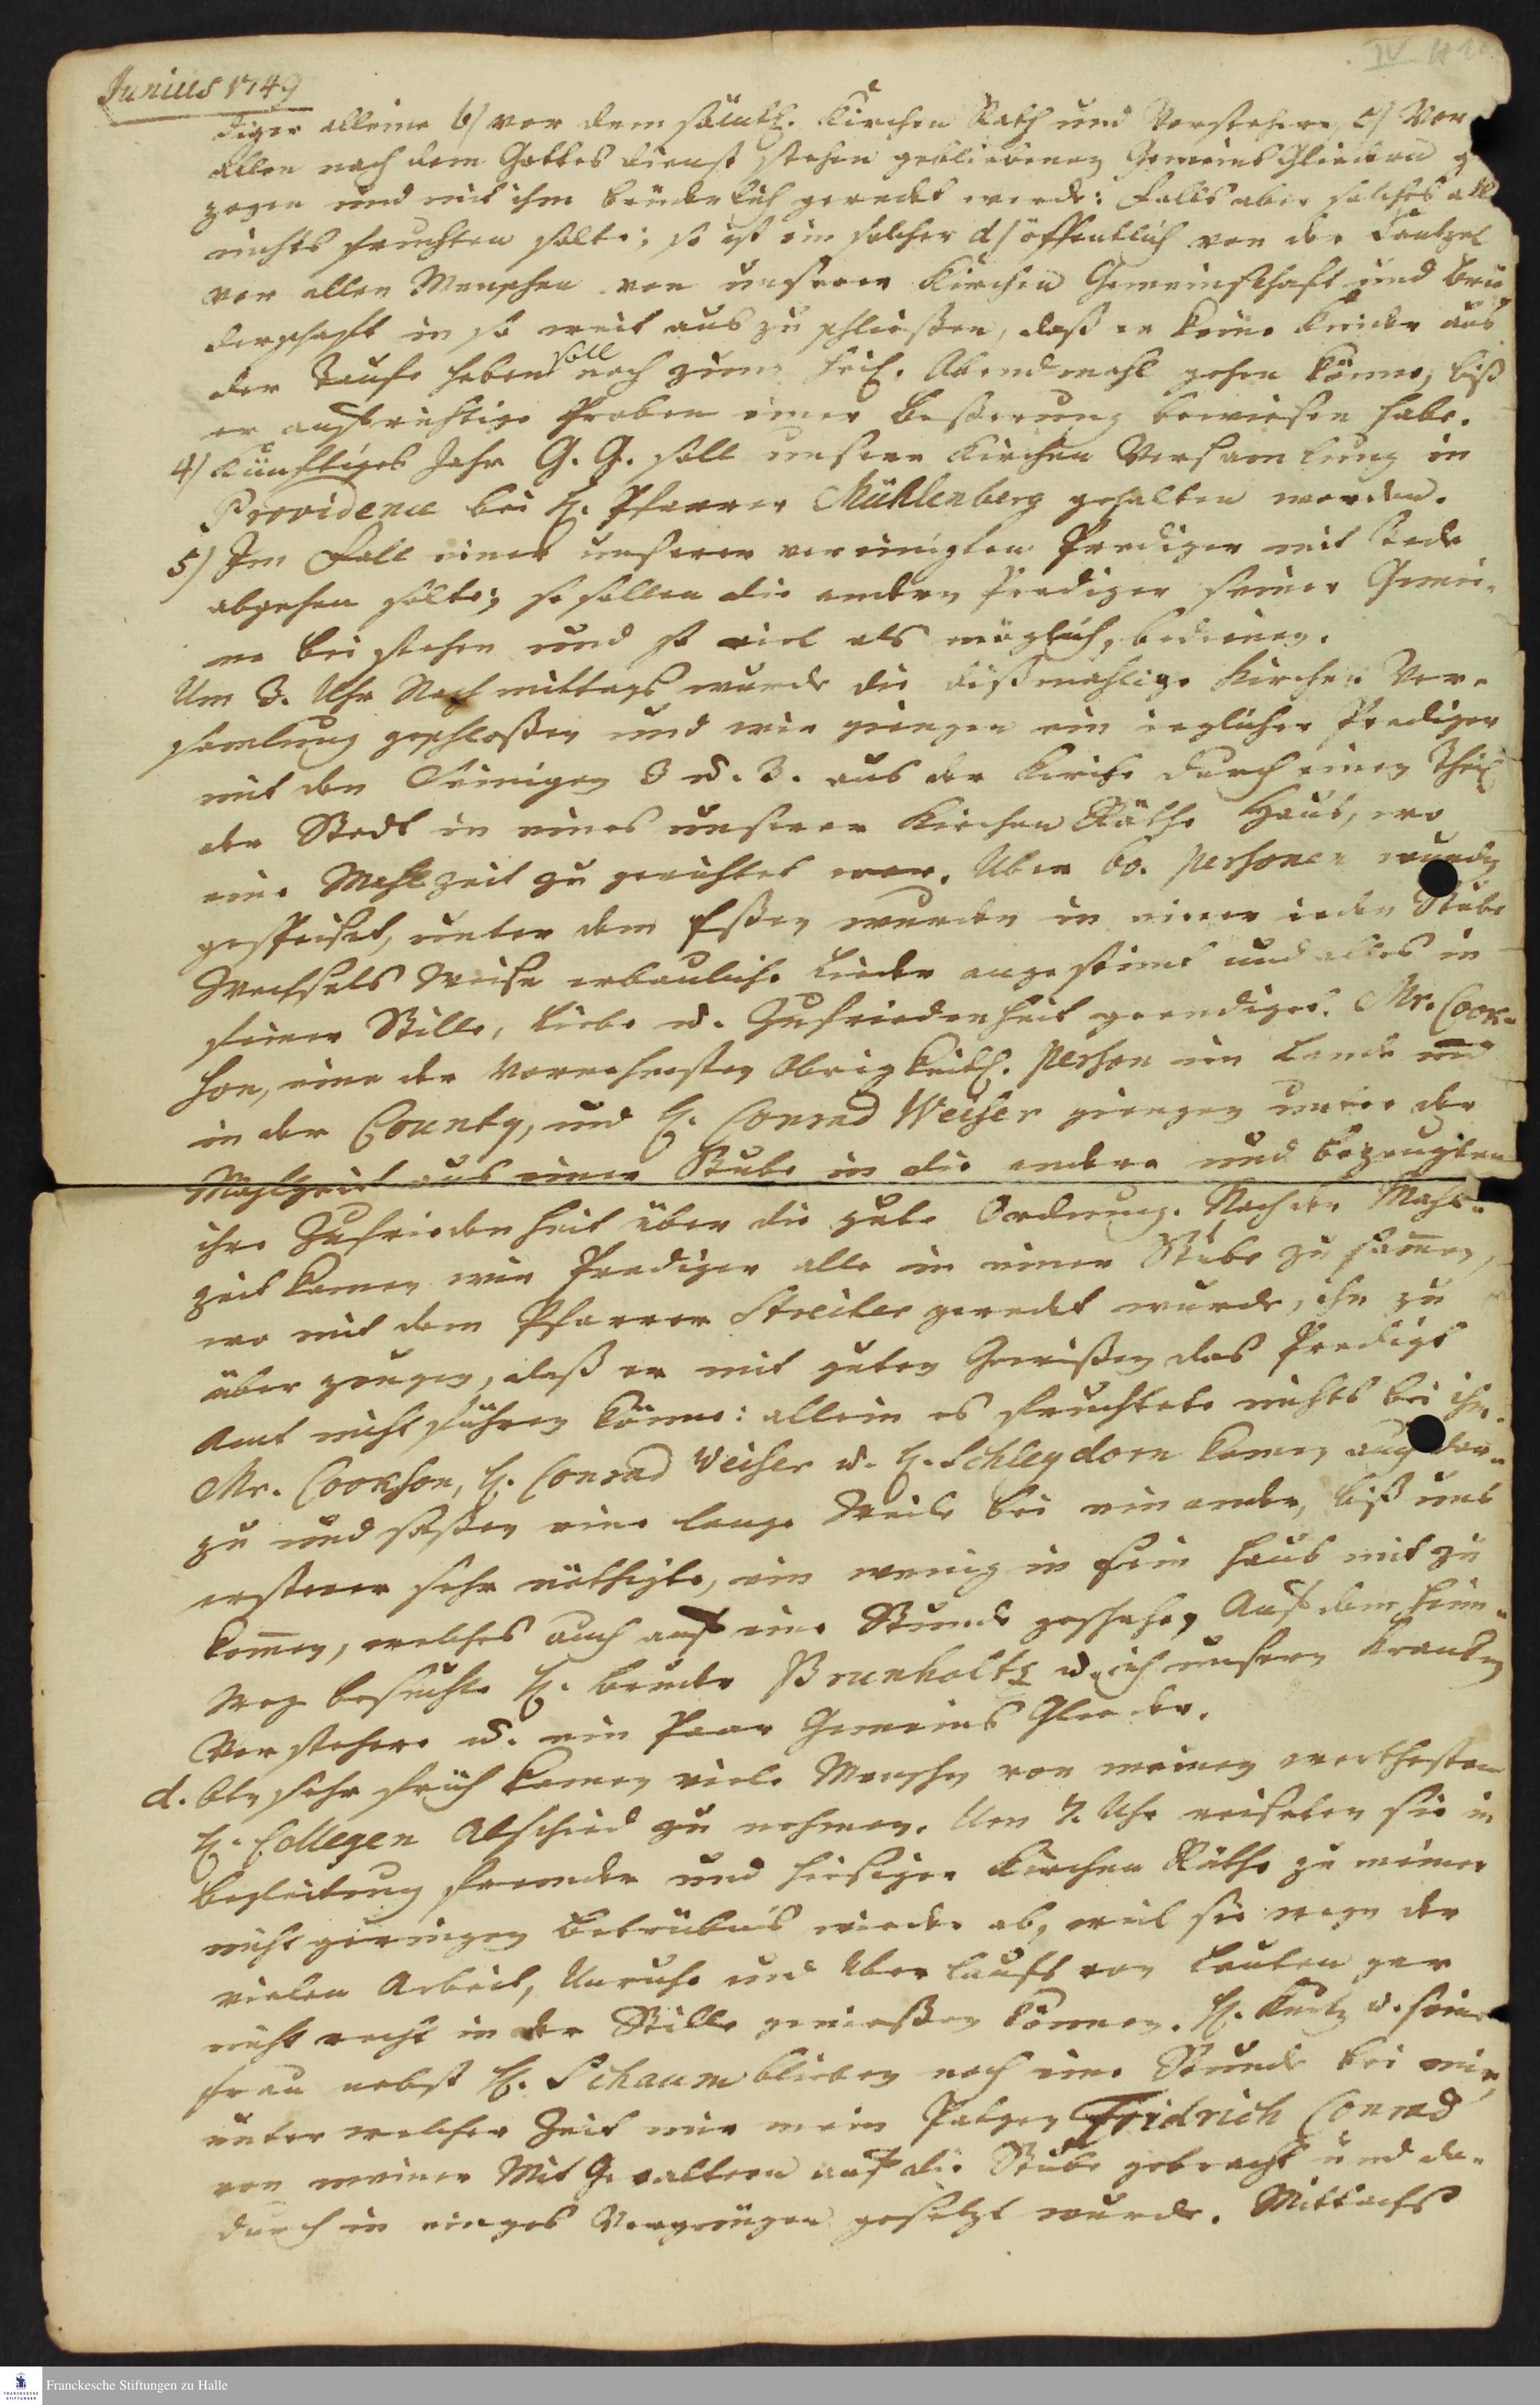 Junius 1749
IV H
diger alleine b) vor dem sämtl. Kirchen Rath und Vorstehern, c) Vor
allen nach dem Gottes dienst stehen gebliebenen Gemeins Gliedern g
zogen und mit ihm brüderlich geredet werde: Falls aber solches all
nichts fruchten solte; so ist ein solcher d) öffentlich von der Cantzel
vor allen Menschen von unserer Kirchen Gemeinschaft und Brü
derschaft in so weit aus zu schließen, daß er keine Kinder aus
der Taufe heben soll noch zum heil. Abendmahl gehen könne, biß
er aufrichtige Proben einer Beßerung bewiesen habe.
4) Künftiges Jahr G. G. soll unsere Kirchen Versamlung in
Providence bei H. Pfarrer Mühlenberg gehalten werden.
5) Im Fall einer unserer vereinigten Prediger mit Tode
abgehen solte; so sollen die andern Prediger seiner Gemei-
ne bei stehen und so viel als möglich, bedienen.
Um 3. Uhr Nach mittags wurde die dißmahlige Kirchen Ver-
samlung geschloßen und wir giengen ein ieglicher Prediger
mit den Seinigen 3 u. 3. aus der Kirche durch einen Theil
der Stadt in eines unserer Kirchen Räthe Haus, wo
eine Mahlzeit zu gerichtet war. Uber 60. Personen wurden
gespeiset, unter dem Eßen wurden in einer ieden Stube
Wechsels Weise erbauliche Lieder angestimt und alles in
feiner Stille, Liebe u. Zufriedenheit geendiget. Mr. Cook-
son, eine der Vornehmsten Obrigkeitl. Person im Lande und
in der County, und H. Conrad Weiser giengen unter der
Mahlzeit aus einer Stube in die andere und bezeugten
ihre Zufriedenheit über die gute Ordnung. Nach der Mahl-
zeit kamen wir Prediger alle in einer Stube zu samen,
wo mit dem Pfarrer Streiter geredet wurde, ihn zu
über zeugen, daß er mit guten Gewißen das Predigt
Amt nicht führen könne: allein es fruchtete nichts bei ihm.
Mr. Cookson, H. Conrad Weiser u. H. Schleydorn kamen auch dar-
zu und saßen eine lange Weile bei ein ander, biß uns
ersterer sehr nöthigte, ein wenig in sein Haus mit zu
komen, welches auch auf eine Stunde geschahe, Auf dem Heim-
Weg besuchte H. Bruder Brunholtz u. ich unsern krancken
Vorstehere u. ein Paar Gemeins Glieder.
d. 6ten sehr früh kamen viele Menschen von meinen werthesten
H. Collegen Abschied zu nehmen. Um 7. Uhr reiseten sie in
Begleitung fremder und hiesiger Kirchen Räthe zu meiner
nicht geringen Betrübnis wieder ab, weil sie wegen der
vielen Arbeit, Unruhe und Uber laufs von Leuten gar
nicht recht in der Stille genießen können. H. Kurtz u. seine
Frau nebst H. Schaum blieben noch eine Stunde bei mir,
unter welcher Zeit mir mein Patgen Fridrich Conrad
von meinen Mit Gevattern auf die Stube gebracht und da-
durch in einiges Vergnügen gesetzt wurde. Mittachs
Franckesche Stiftungen zu Halle